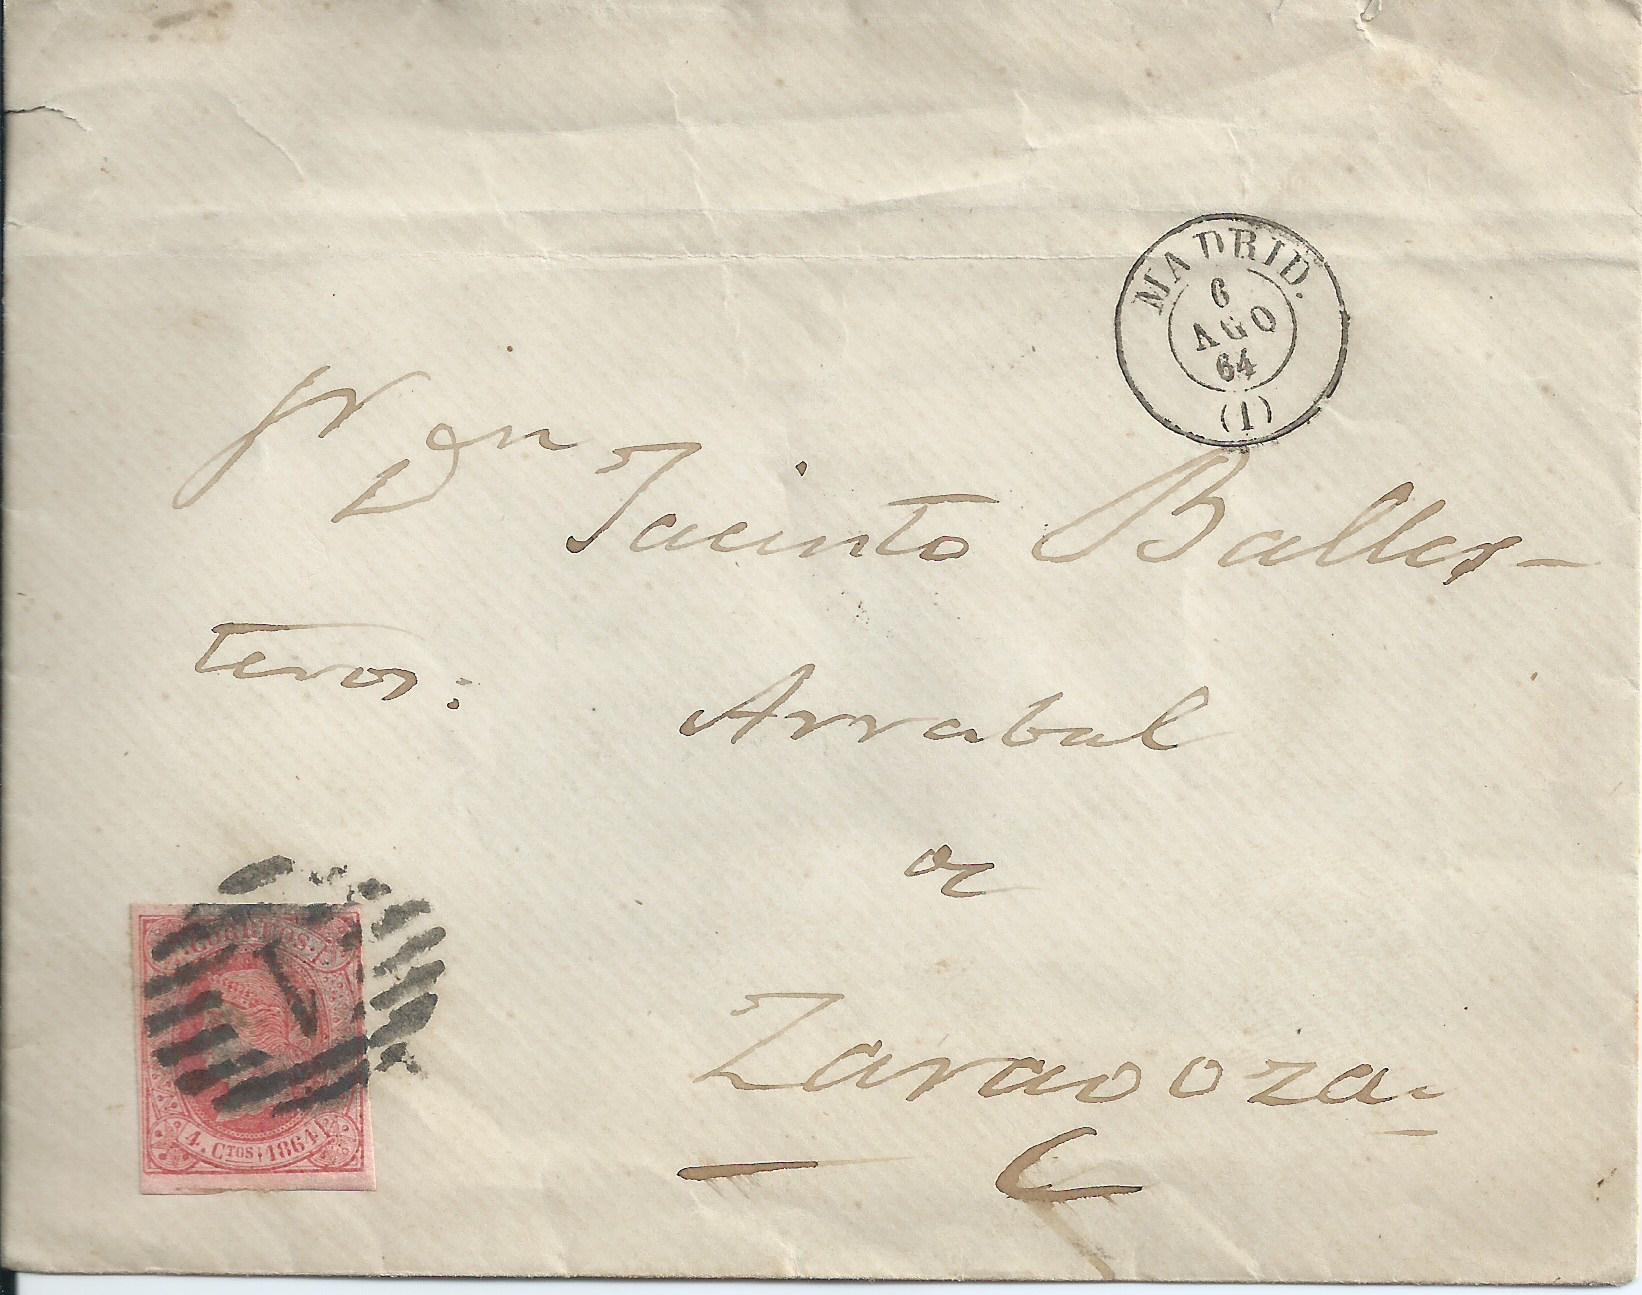 MADRID.
6
AGO
64
(1)
Sr Dn Jacinto Balles-
teros:
Arrabal
a
Zaragoza
CORREOS.
1
4. CTOS 1864